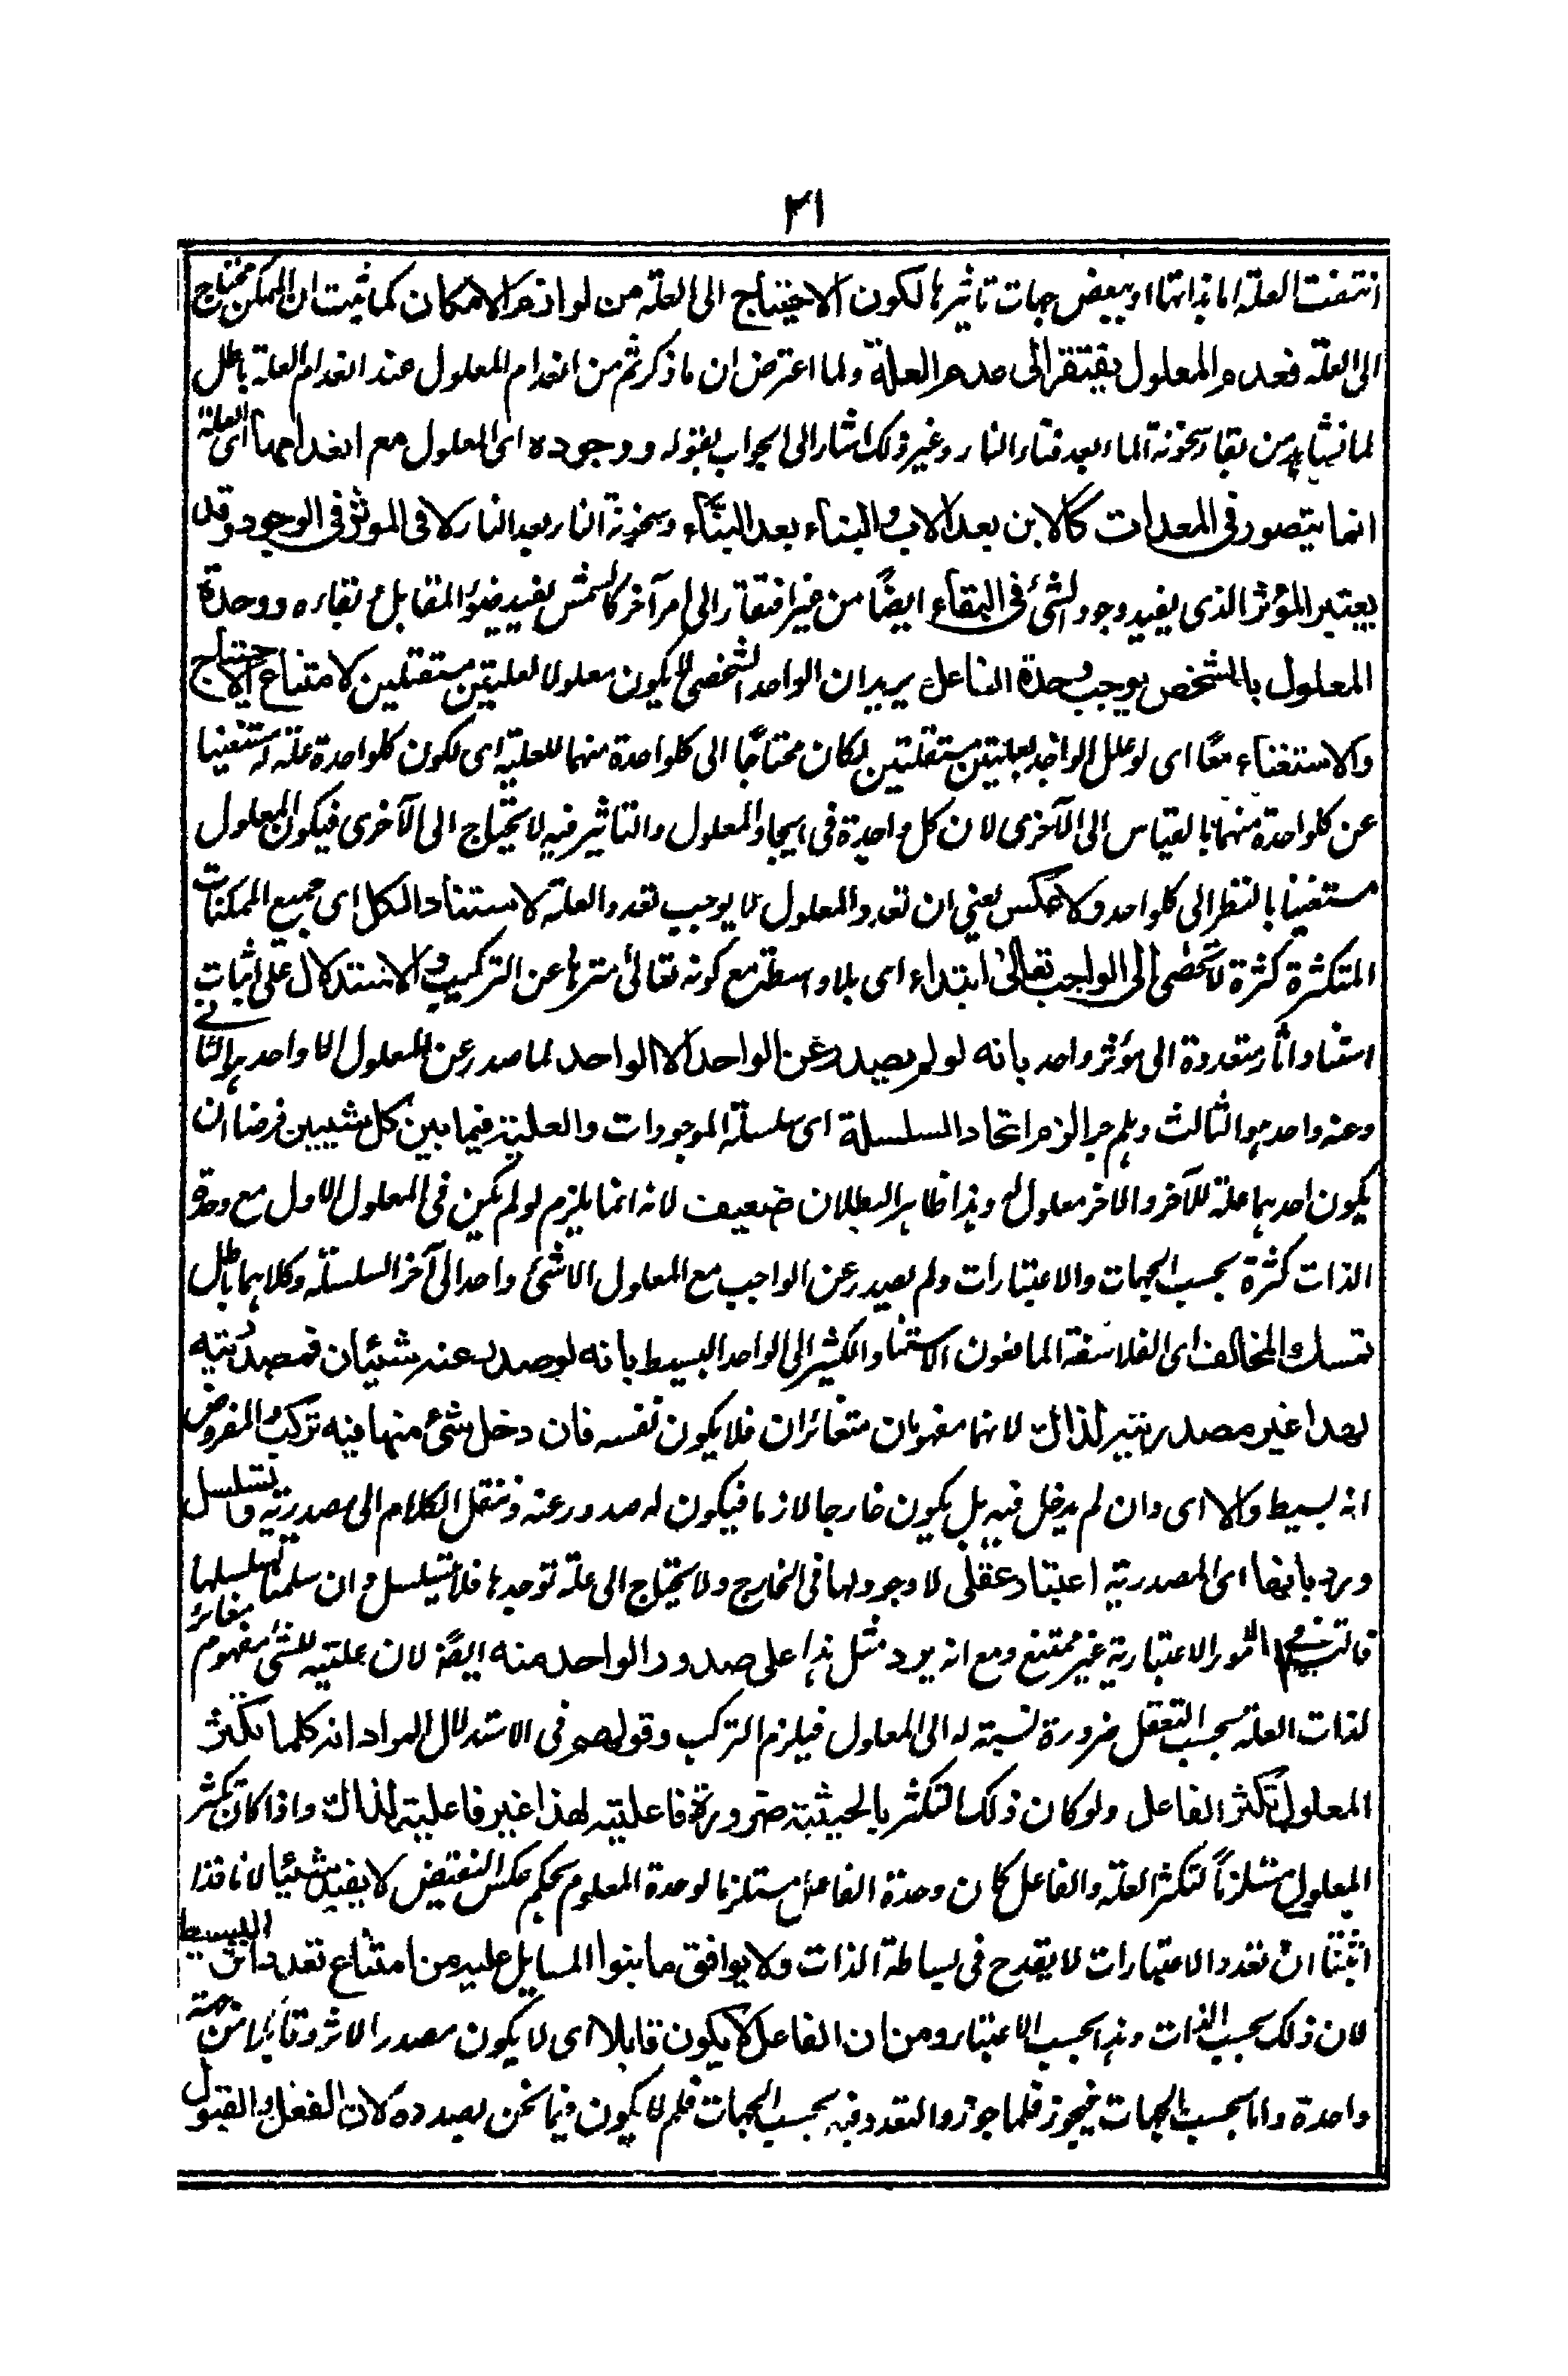 ٣١
انتفت العلة اما بذاتها او ببعض جهات تاثيرها لكون الاحتياج الى العلة من لوازم الامكان كما ثبت ان الممكن محتاج
الى العلة فعدم المعلول يفتقر الى عدم العلة ولما اعترض ان ما ذكرتم من انعدام المعلول عند انعدام العلة باطل
لما نشاهد من بقاء سخونة الماء بعد فناء النار وغير ذلك اشار الى الجواب بقوله ووجوده اى المعلول مع انعدامها اى العلة
انما يتصور فى المعدات كالابن بعد الاب والبناء بعد البناء وسخونة النار بعد النار لا فى الموثر فى الوجود وقد
يعتبر المؤثر الذى يفيد وجود الشئ فى البقاء ايضًا من غير افتقار الى امر آخر كالشمس يفيد ضوء المقابل بقاءه ووحدة
المعلول بالشخص يوجب وحدة الفاعل يريد ان الواحد الشخصى لا يكون معلولا لعليتين مستقلين لامتناع الاحتياج
والاستغناء معًا اى لو علل الواحد بعليتين مستقلتين لكان محتاجًا الى كلواحدة منهما للعلية اى لكون كلواحدة علة له مستغنيا
عن كلواحدة منهما بالقياس الى الآخرى لان كل واحدة فى ايجاد المعلول والتاثير فيه لا يحتاج الى الآخرى فيكون المعلول
مستغنيا بالنظر الى كلواحد ولا عكس يعنى ان تعدد المعلول لا يوجب تعدد العلة لاستناد الكل اى جميع الممكنات
المتكثرة كثرة لا تحصى الى الواجب تعالى ابتداء اى بلا واسطة مع كونه تعالى منزها عن التركيب والاستدلال على اثبات
استناد اثار متعددة الى مؤثر واحد بانه لو لم يصدر عن الواحد الا الواحد لما صدر عن المعلول الا واحد هو الثانى
وعنه واحد هو الثالث وهلم جرا لزم اتحاد السلسلة اى سلسلة الموجودات والعلية فيما بين كل شيئين فرضا ان
يكون احدهما علة للآخر والاخر معلول له وهذا ظاهر البطلان ضعيف لانه انما يلزم لو لم يكن فى المعلول الاول مع وحدة
الذات كثرة بحسب الجهات والاعتبارات ولم يصدر عن الواجب مع المعلول الا شئ واحد الى آخر السلسلة وكلاهما باطل
تمسك المخالف اى الفلاسفة المانعون لاستناد الكثير الى الواحد البسيط بانه لو صدر عنه شيئان فمصدريته
لهذا غير مصدريته لذاك لانهما مفهومان متغائران فلا يكون نفسه فان دخل شئ منها فيه تركب والمفروض
انه بسيط والا اى وان لم يدخل فيه بل يكون خارجا لازما فيكون له صدور عنه وننقل الكلام الى مصدريته وتسلسل
ورد بانها اى المصدرية اعتبار عقلى لا وجود لها فى الخارج ولا يحتاج الى علة توجدها فلا تسلسل وان سلمنا تسلسلها
فالتس فى الامور الاعتبارية غير ممتنع ومع انه يرد مثل هذا على صدور الواحد منه ايضًا لان علتيه للشئ مفهوم مغائر
لذات العلة بحسب التعقل ضرورة نسبته له الى المعلول فيلزم التركب وقولهم فى الاستدلال المراد انه كلما تكثر
المعلول تكثر الفاعل ولو كان ذلك التكثر بالحيثية ضرورة فاعليته لهذا غير فاعليته لذاك واذا كان تكثر
المعلول مستلزماً لتكثر العلة والفاعل كان وحدة الفاعل مستلزما لوحدة المعلوم بحكم عكس النقيض لا يفيد شيئا لانا قد
اثبتنا ان تعدد الاعتبارات لا يقدح فى بساطة الذات ولا يوافق ما بنوا المسايل عليه من امتناع تعدد اثر البسيط
لان ذلك بحسب الذات وهذا بحسب الاعتبار ومن ان الفاعل لا يكون قابلا اى لا يكون مصدرا لاثر وقابلا من جهة
واحدة واما بحسب الجهات فيجوز فلما جوزوا التعدد فيه بحسب الجهات فلم لا يكون فيما نحن بصدده لان الفعل والقبول